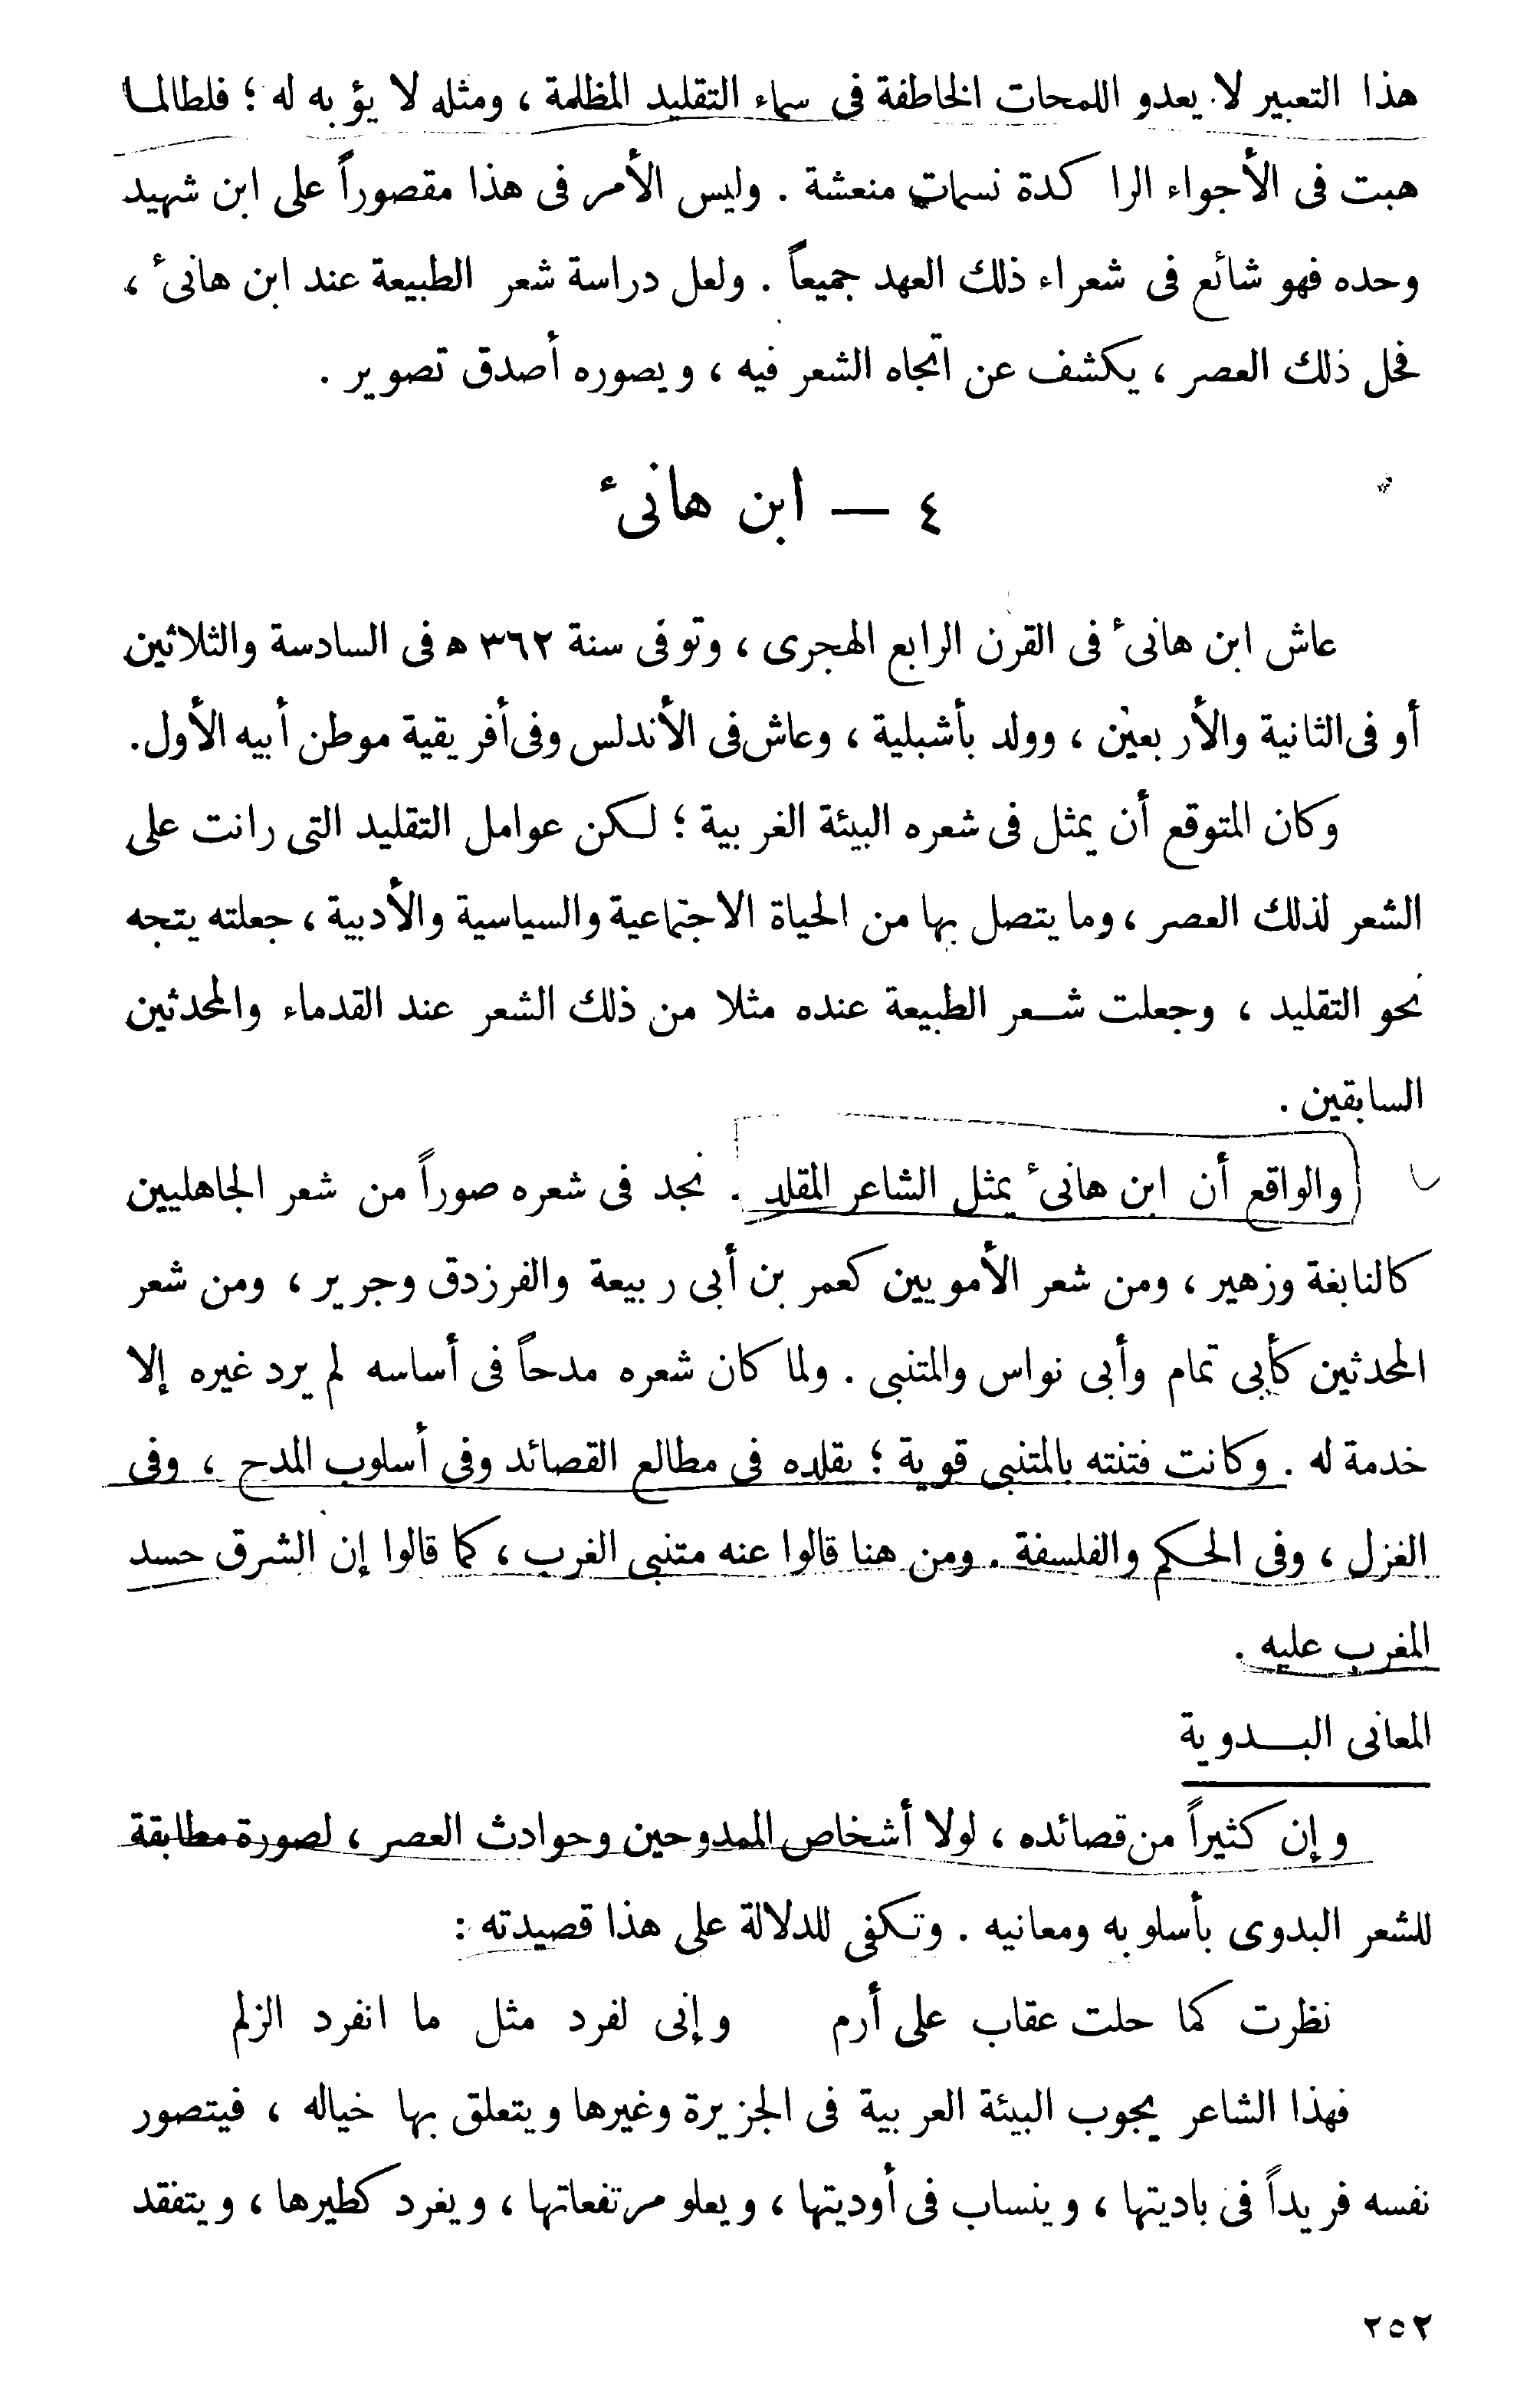 هذا التعبير لا يعدو اللمحات الخاطفة فى سماء التقليد المظلمة ، ومثله لا يؤ به له ؛ فلطالما
هبت فى الأجواء الراكدة نسمات منعشة . وليس الأمر فى هذا مقصوراً على ابن شهيد
وحده فهو شائع فى شعراء ذلك العهد جميعاً . ولعل دراسة شعر الطبيعة عند ابن هانىء ،
فحل ذلك العصر ، يكشف عن اتجاه الشعر فيه ، ويصوره أصدق تصوير .
٤ — ابن هانىء
عاش ابن هانىء فى القرن الرابع الهجرى ، وتوفى سنة ٣٦٢ ه فى السادسة والثلاثين
أو فى الثانية والأربعين ، وولد بأشبلية ، وعاش فى الأندلس وفى أفريقية موطن أبيه الأول.
وكان المتوقع أن يمثل فى شعره البيئة الغربية ؛ لكن عوامل التقليد التى رانت على
الشعر لذلك العصر ، وما يتصل بها من الحياة الاجتماعية والسياسية والأدبية ، جعلته يتجه
نحو التقليد ، وجعلت شعر الطبيعة عنده مثلا من ذلك الشعر عند القدماء والمحدثين
السابقين .
والواقع أن ابن هانىء يمثل الشاعر المقلد . نجد فى شعره صوراً من شعر الجاهليين
كالنابغة وزهير ، ومن شعر الأمويين كعمر بن أبى ربيعة والفرزدق وجرير ، ومن شعر
المحدثين كأبى تمام وأبى نواس والمتنبى . ولما كان شعره مدحاً فى أساسه لم يرد غيره إلا
خدمة له . وكانت فتنته بالمتنبى قوية ؛ يقلده فى مطالع القصائد وفى أسلوب المدح ، وفى
الغزل ، وفى الحكم والفلسفة . ومن هنا قالوا عنه متنبى الغرب ، كما قالوا إن الشرق حسد
المغرب عليه .
المعانى البدوية
وإن كثيراً من قصائده ، لولا أشخاص الممدوحين وحوادث العصر ، لصورة مطابقة
للشعر البدوى بأسلوبه ومعانيه . وتكفى للدلالة على هذا قصيدته :
نظرت كما حلت عقاب على أرم وإنى لفرد مثل ما انفرد الزلم
فهذا الشاعر يجوب البيئة العربية فى الجزيرة وغيرها ويتعلق بها خياله ، فيتصور
نفسه فريداً فى باديتها ، وينساب فى أوديتها ، ويعلو مرتفعاتها ، ويغرد كطيرها ، ويتفقد
٢٥٢